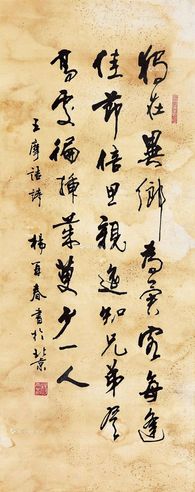 獨在異鄉為異客每逢
佳節倍思親遙知兄弟登
高處徧插茱萸少一人
王摩詰詩 楊再春書於北京